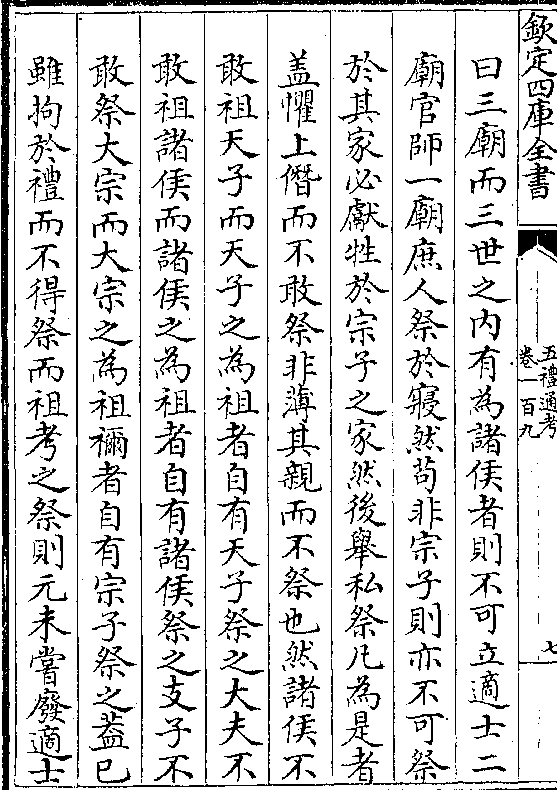 欽定四庫全書
五禮通考
卷一百九
七
曰三廟而三世之内有為諸侯者則不可立適士二
廟官師一廟庶人祭於寢然苟非宗子則亦不可祭
於其家必獻牲於宗子之家然後舉私祭凡為是者
盖懼上僭而不敢祭非薄其親而不祭也然諸侯不
敢祖天子而天子之為祖者自有天子祭之大夫不
敢祖諸侯而諸侯之為祖者自有諸侯祭之支子不
敢祭大宗而大宗之為祖禰者自有宗子祭之蓋已
雖拘於禮而不得祭而祖考之祭則元未嘗廢適士